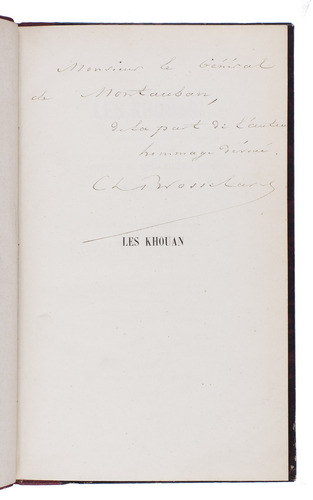 Monsieur le Général
de Montauban,
de la part de l'auteur
hommage dévoué.
Ch. Brosselard
LES KHOUAN